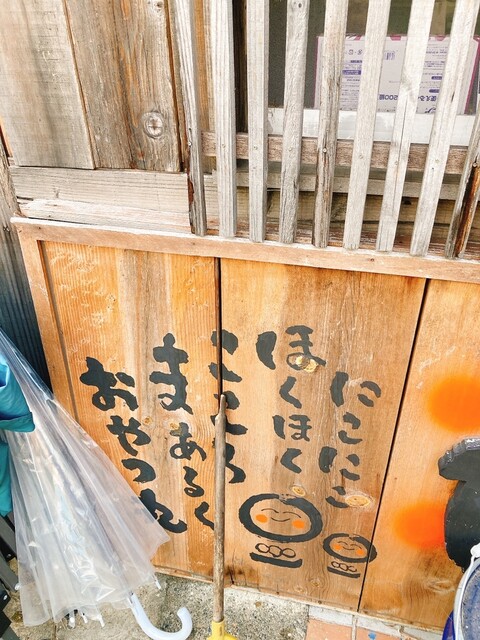 にこにこ
ほくほく
こころ
まあるく
おやつ丸